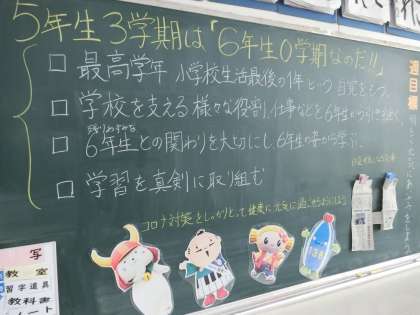 5年生3学期は「6年生0学期なのだ!!」
□ 最高学年 小学校生活最後の1年という自覚をもつ。
□ 学校を支える様々な役割、仕事などを6年生から引き継ぐ
□ 6年生との関わりを大切にし6年生の姿から学ぶ。
□ 学習を真剣に取り組む
コロナ対策をしっかりとって健康に元気に過ごせるように!
週目標
写
教室
習字道具
教科書
ノート